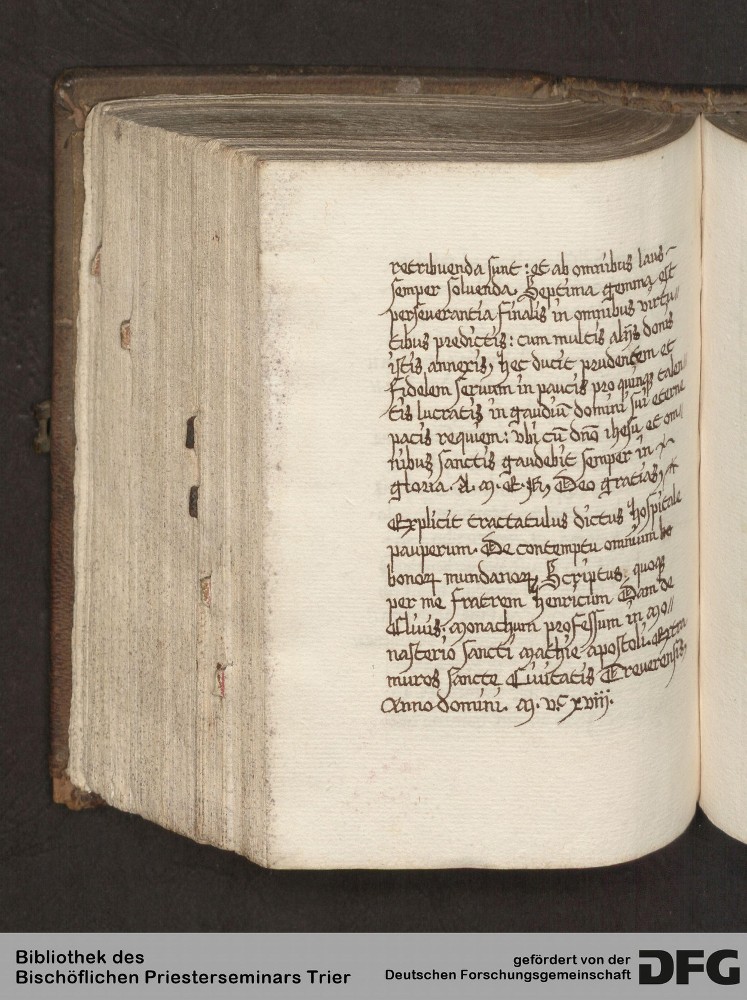 retribuenda sunt : et ab omnibus laus
semper soluenda. Septima gemma est
perseuerantia finalis in omnibus virtu//
tibus predictis : cum multis alijs donis
istis annexis, hec ducit prudentem et
fidelem seruum in paucis pro quinque talen//
tis lucratis in gaudiū domini sui eterne
pacis requiem : vbi cū dn̄o ihesu et om//
nibus sanctis gaudebit semper in
gloria. A. M. E. N, Deo gratias,
Explicit tractatulus dictus hospitale
pauperum. De contemptu omnium bo
bonoꝝ mundanoꝝ, Scriptus quoqꝫ
per me fratrem henricum Dam de
Cliuis. monachum professum in Mo//
nasterio sancti Mathie apostoli. Extra
muros sancte Ciuitatis Treuerensis,
Anno domini. M. vC xviij.
Bibliothek des
Bischöflichen Priesterseminars Trier
gefördert von der
Deutschen Forschungsgemeinschaft
DFG